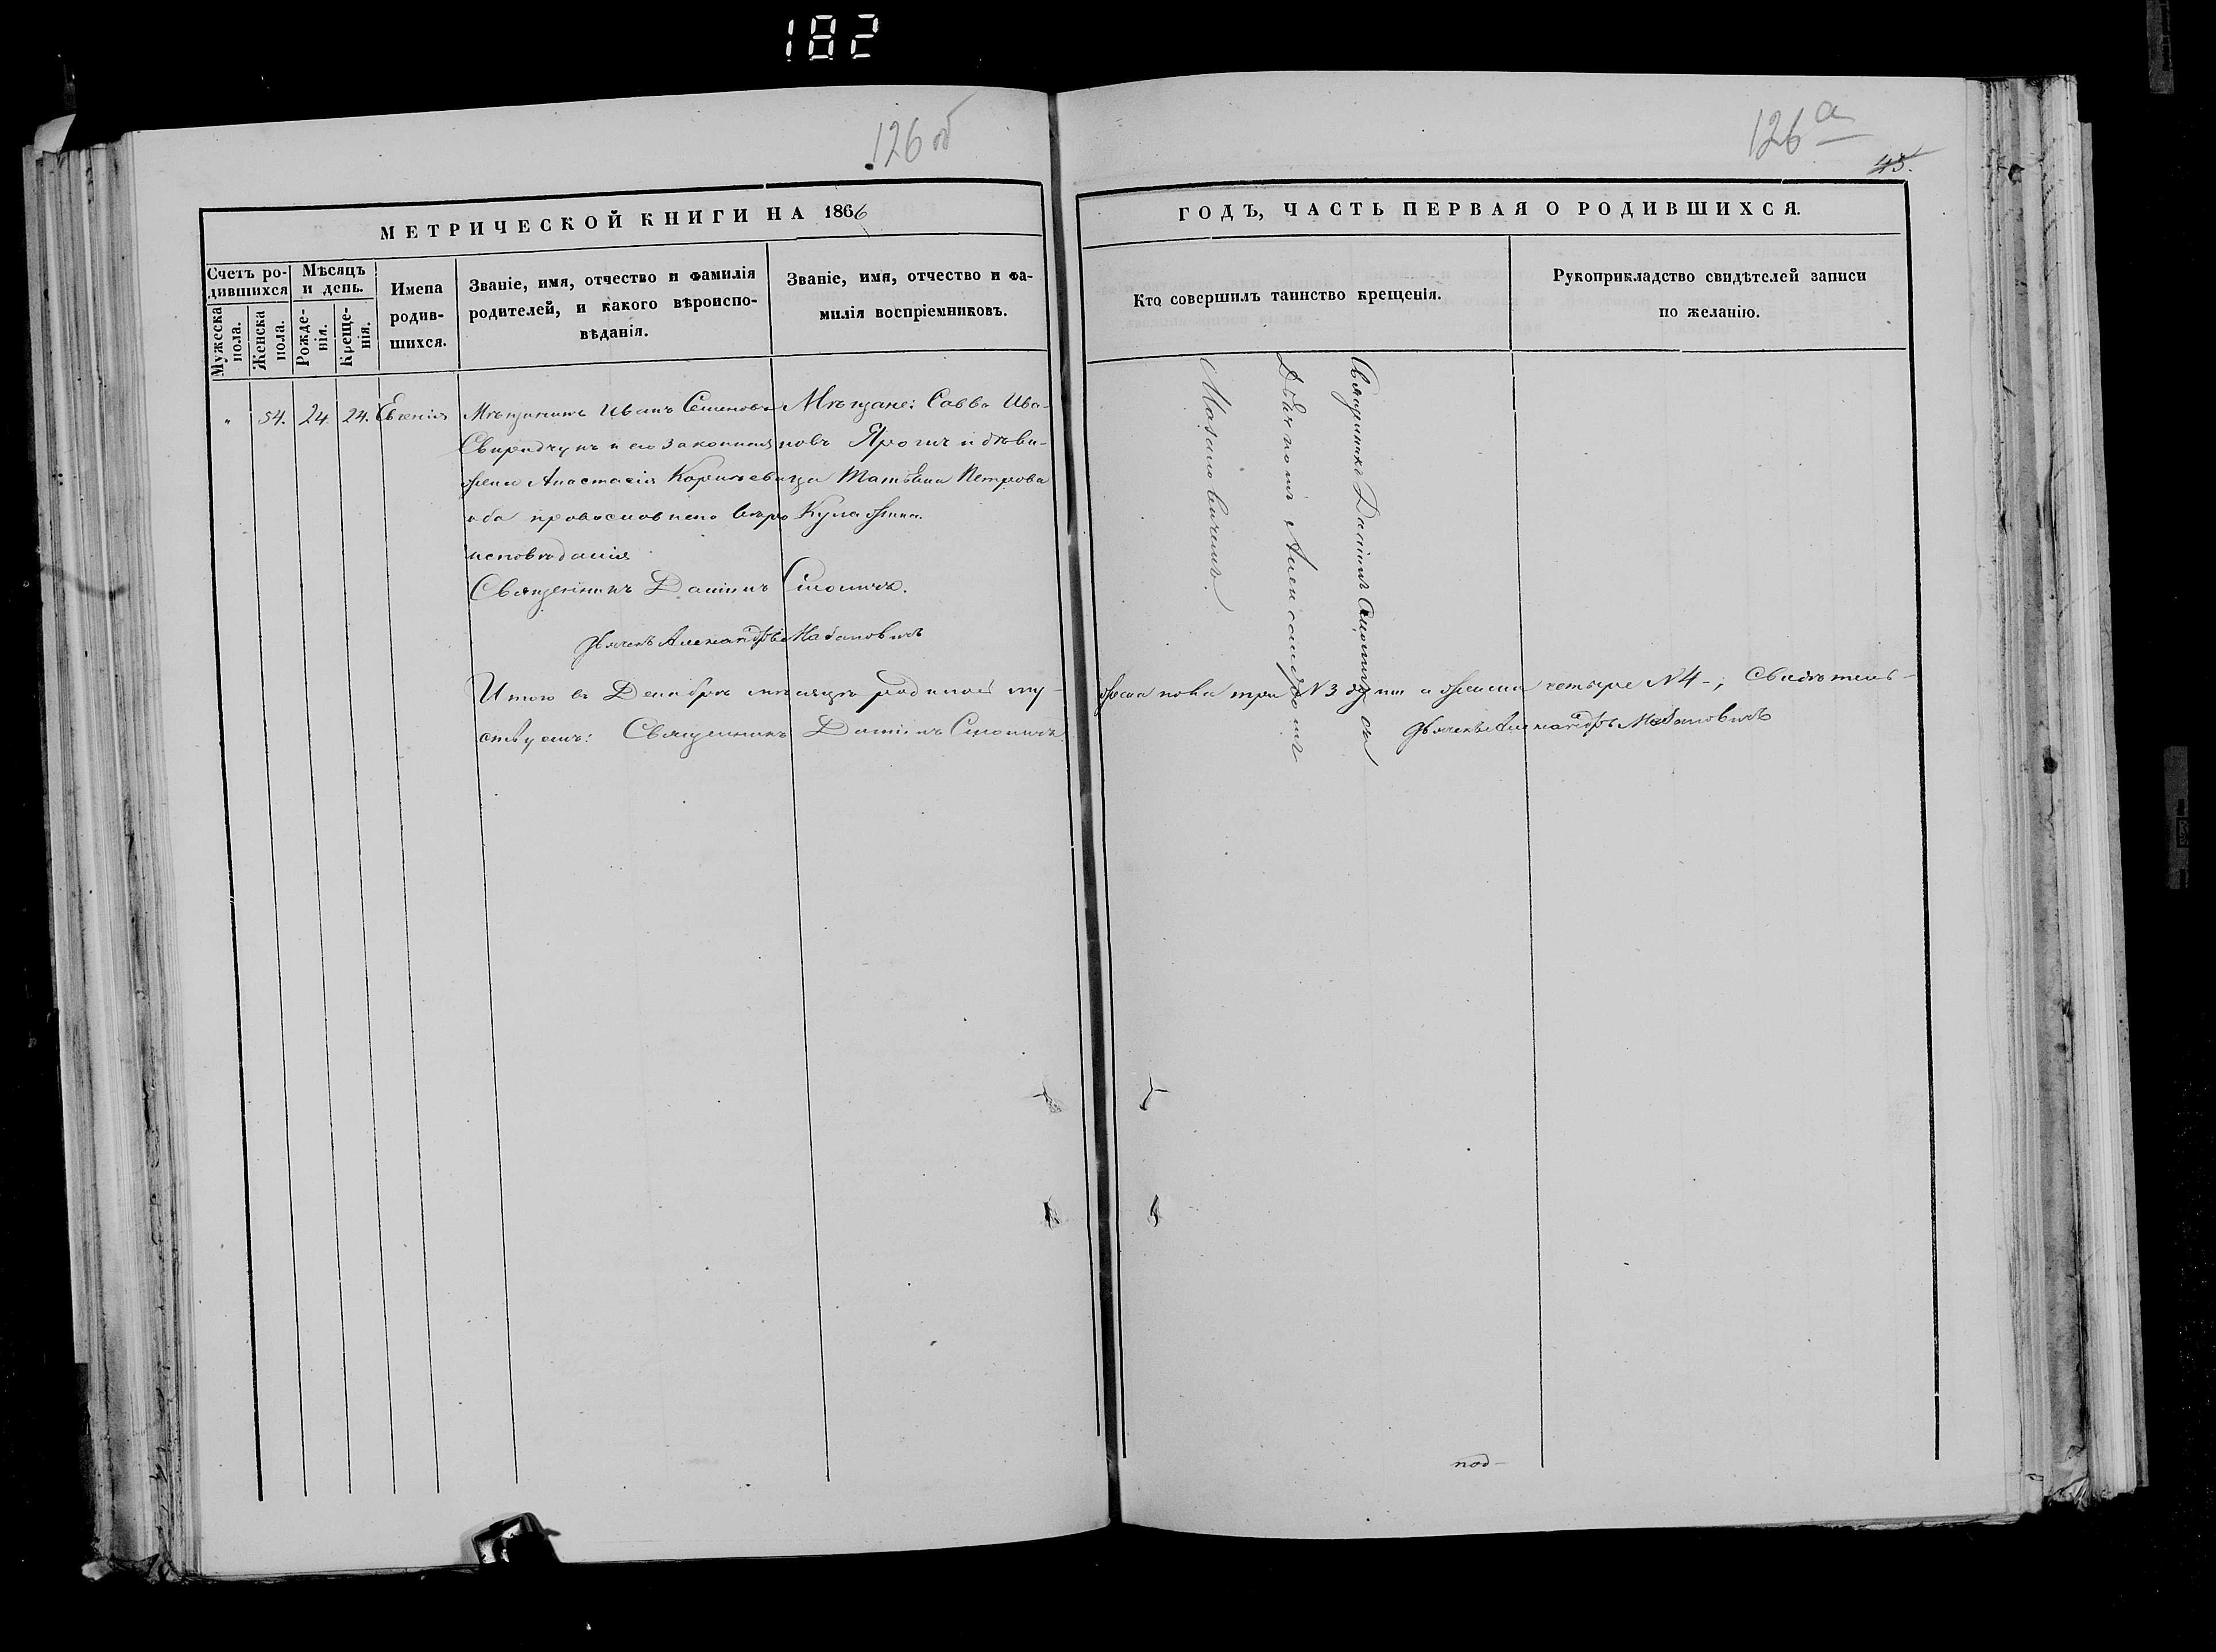 182
126 об
126 а
45.
МЕТРИЧЕСКОЙ КНИГИ НА 1866
ГОДЪ, ЧАСТЬ ПЕРВАЯ О РОДИВШИХСЯ.
Счетъ ро-
дившихся
Мужеска
пола.
Женска
пола.
Мѣсяцъ
и день.
Рожде-
нія.
Креще-
нія.
Имена
родив-
шихся.
Званіе, имя, отчество и фамилія
родителей, и какого вѣроиспо-
вѣданія.
Званіе, имя, отчество и фа-
милія воспріемниковъ.
Кто совершилъ таинство крещенія.
Рукоприкладство свидѣтелей записи
по желанію.
" 54. 24. 24. Евгенія
Мѣщанинъ Иванъ Семеновъ
и его законная
жена Анастасія
оба православнаго
исповѣданія
Мѣщане: Савва Ива-
новъ и дѣви-
ца Татьяна Петрова
Священникъ Даніилъ
Дьячекъ Александръ
Священникъ Даніилъ съ
Дьячкомъ Александромъ
Итого въ Декабрѣ мѣсяцѣ родилось му-
жеска пола три № 3 а женска четыре № 4-; Свидѣтель-
ствуемъ: Священникъ Даніилъ
Дьячекъ Александръ
под-